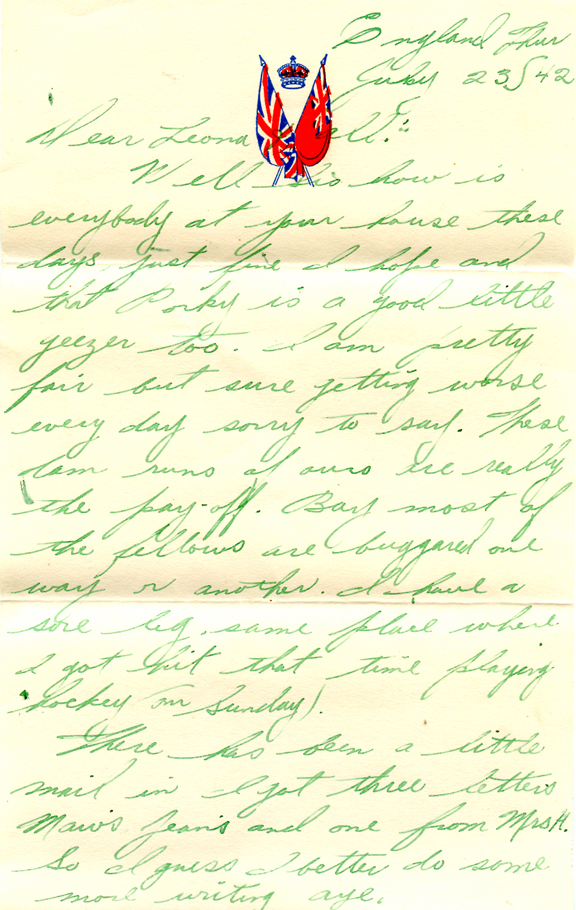 England Thur
July 23/42
Dear Leona
Well Sis how is
everybody at your house these
days, just fine I hope and
that Porky is a good little
geezer too. I am pretty
fair but sure getting worse
every day sorry to say. These
dam runs of ours are really
the pay-off. Boy most of
the fellows are buggared one
way or another. I have a
sore leg, same place where
I got hit that time playing
hockey (on Sunday).
There has been a little
mail in I got three letters
Maw's Jean's and one from Mrs H.
So I guess I better do some
more writing aye.